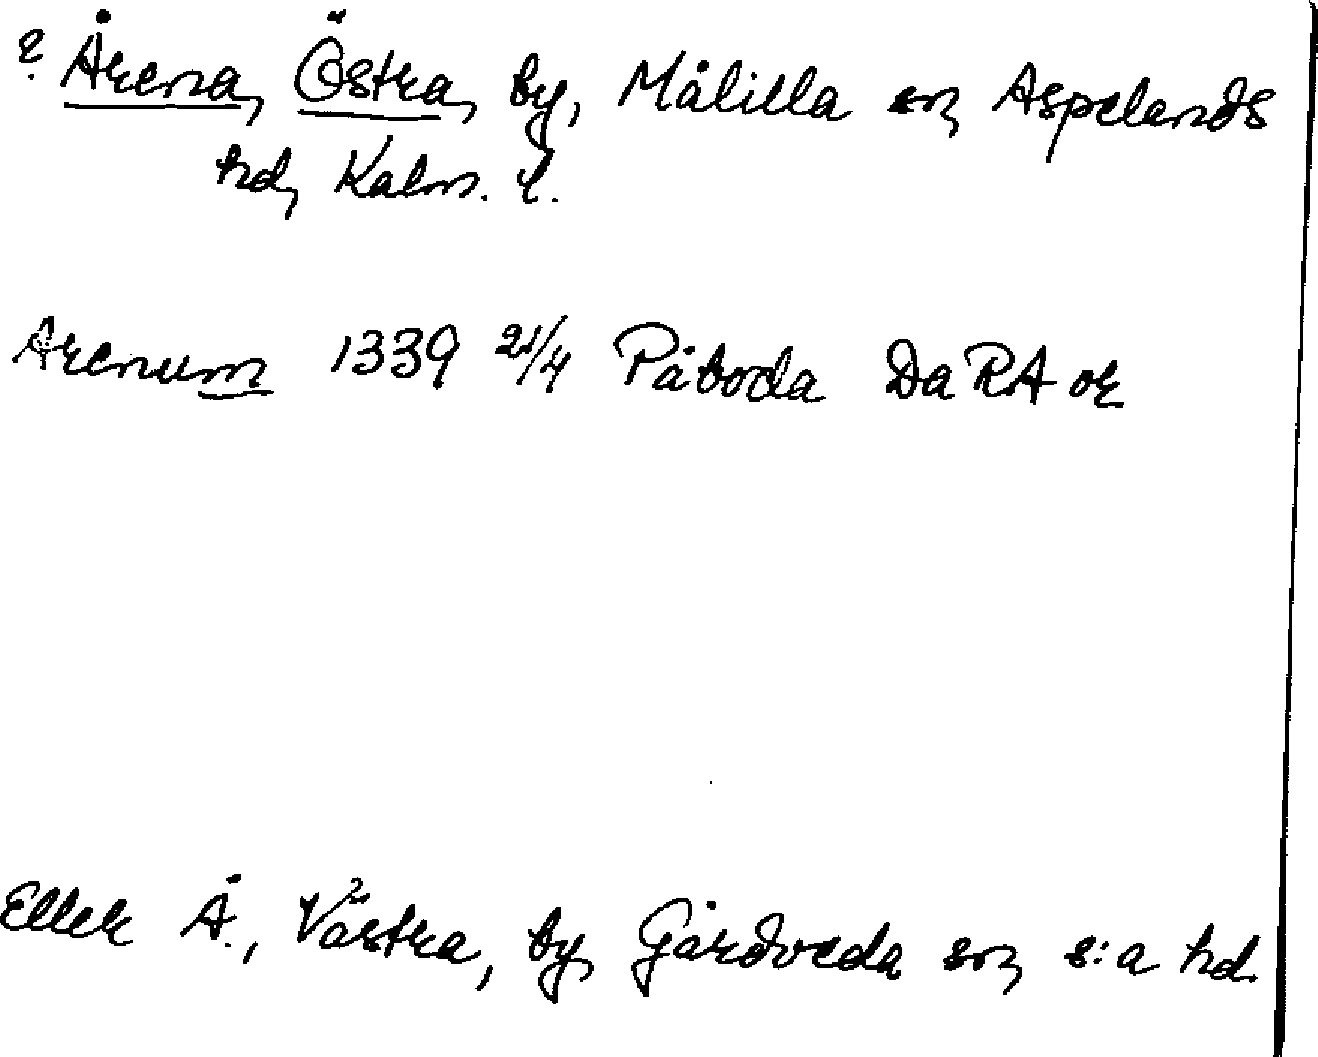 ? Årena, Östra, by, Målilla sn, Aspelands
hd, Kalm. l.
Arenum 1339 21/4 Påboda DaRA or
Eller Å., Västra, by, Gårdveda sn, s:a hd.